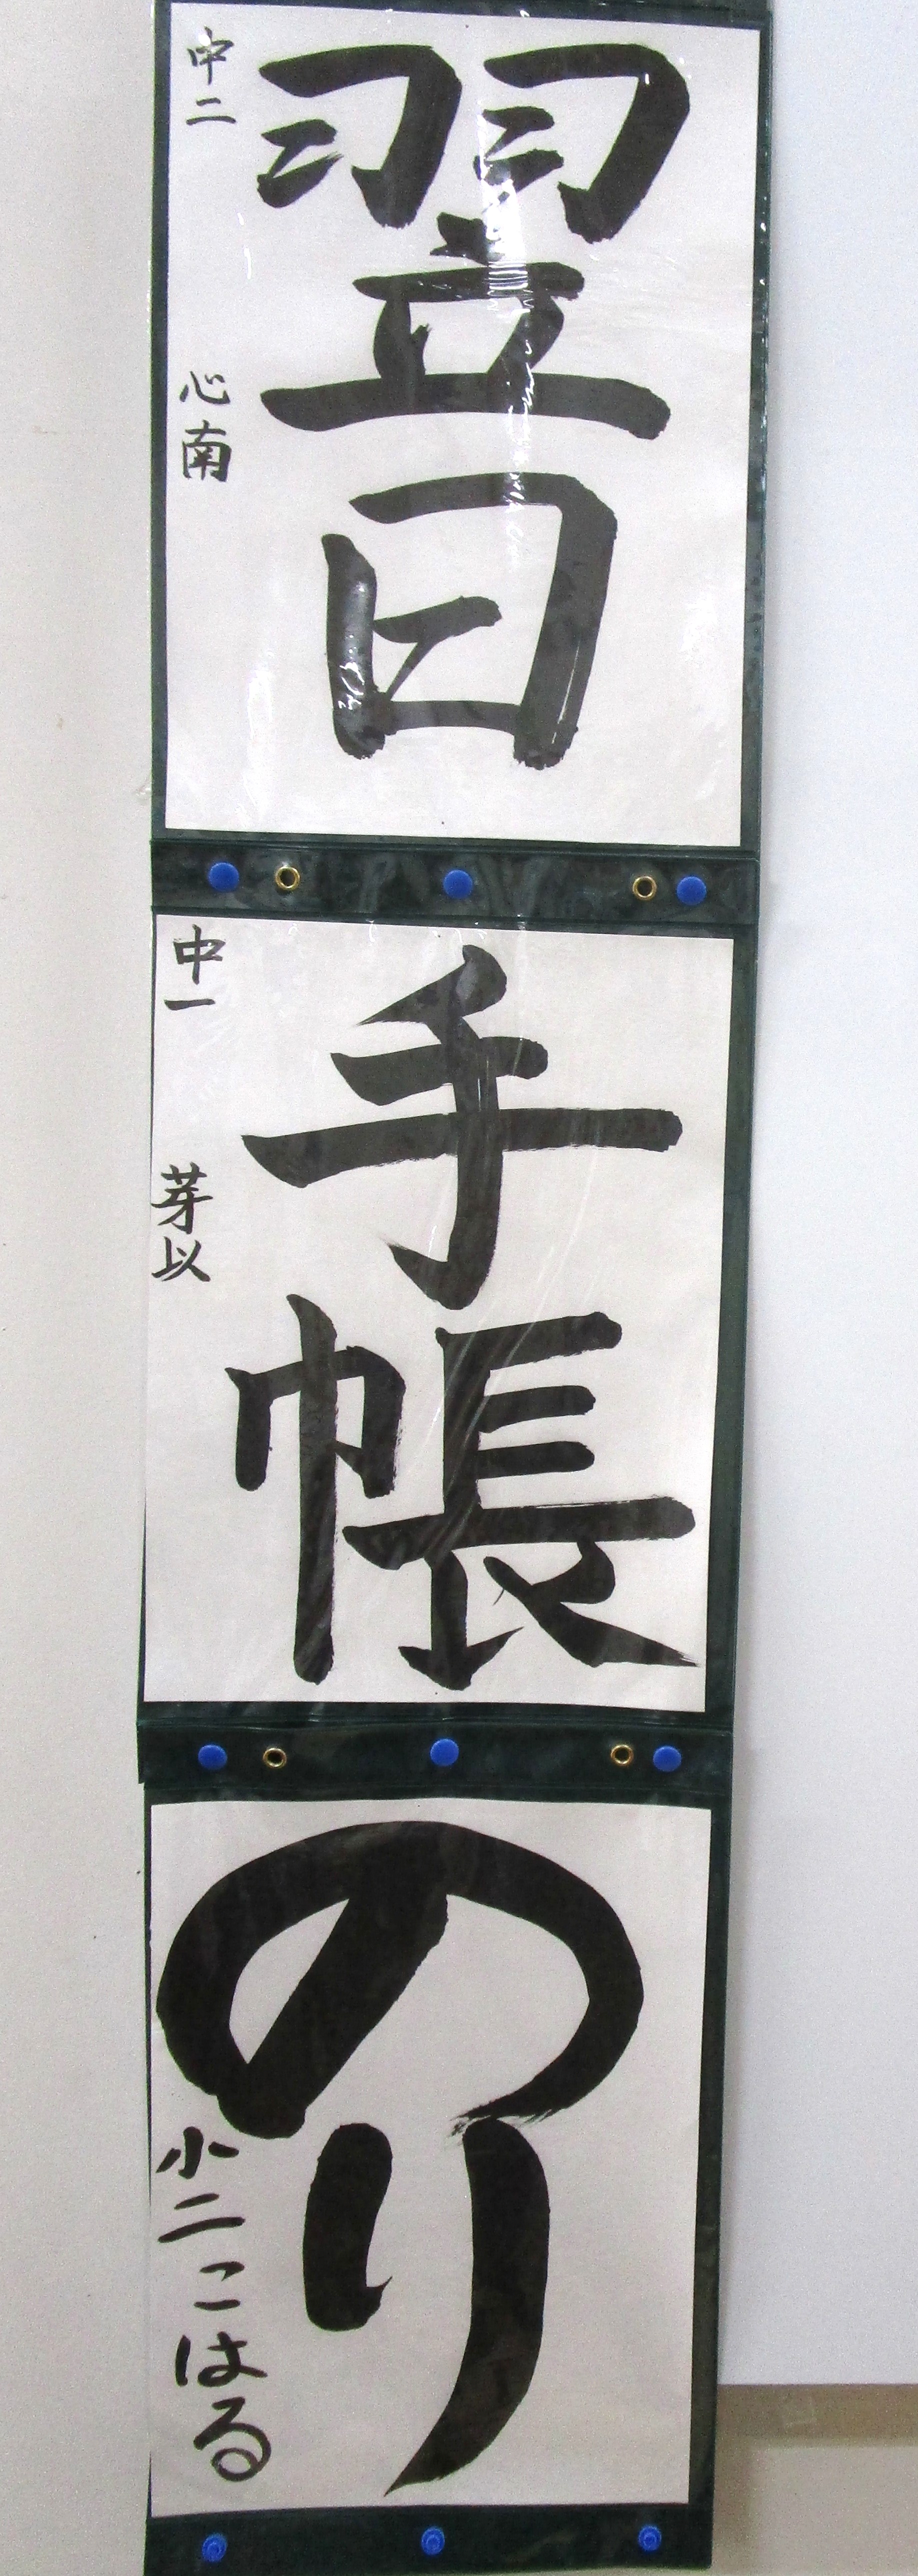 翌日
中二 心南
手帳
中一 芽以
のり
小二 こはる